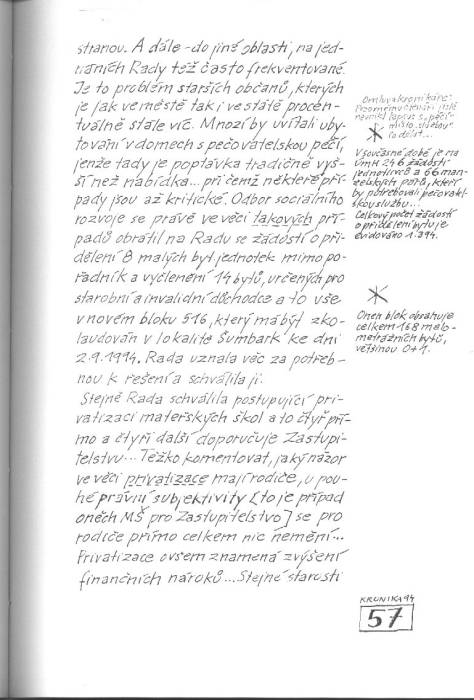 stranou. A dále - do jiné oblasti, na jed-
náních Rady též často frekventované.
Je to problém starších občanů, kterých
je jak ve městě tak i ve státě procen-
tuálně stále víc. Mnozí by uvítali uby-
tování v domech s pečovatelskou péčí,
jenže tady je poptávka tradičně vyš-
ší než nabídka... přičemž některé pří-
pady jsou až kritické. Odbor sociálního
rozvoje se právě ve věci takových pří-
padů obrátil na Radu se žádostí o při-
dělení 8 malých byt. jednotek mimo po-
řadník a vyčlenění 14 bytů, určených pro
starobní a invalidní důchodce a to vše
v novém bloku 516, který má být zko-
laudován v lokalitě Šumbark ke dni
2.9.1994. Rada uznala věc za potřeb-
nou k řešení a schválila ji.
Stejně Rada schválila postupující pri-
vatizaci mateřských škol a to čtyř pří-
mo a čtyři další doporučuje Zastupi-
telstvu... Těžko komentovat, jaký názor
ve věci privatizace mají rodiče, u pou-
hé právní subjektivity [to je případ
oněch MŠ pro Zastupitelstvo] se pro
rodiče přímo celkem nic nemění...
Privatizace ovšem znamená zvýšení
finančních nároků... Stejné starosti
Omluva kronikáře:
"péčí"
místo "službou"
V současné době je na
ÚMH 246 žádostí
jednotlivců a 66 man-
želských párů, kteří
by potřebovali pečovatel-
skou službu...
Celkový počet žádostí
o přidělení bytu je
evidováno 1.394.
Onen blok obsahuje
celkem 168 malo-
metrážních bytů,
většinou 0+1.
KRONIKA 94
57